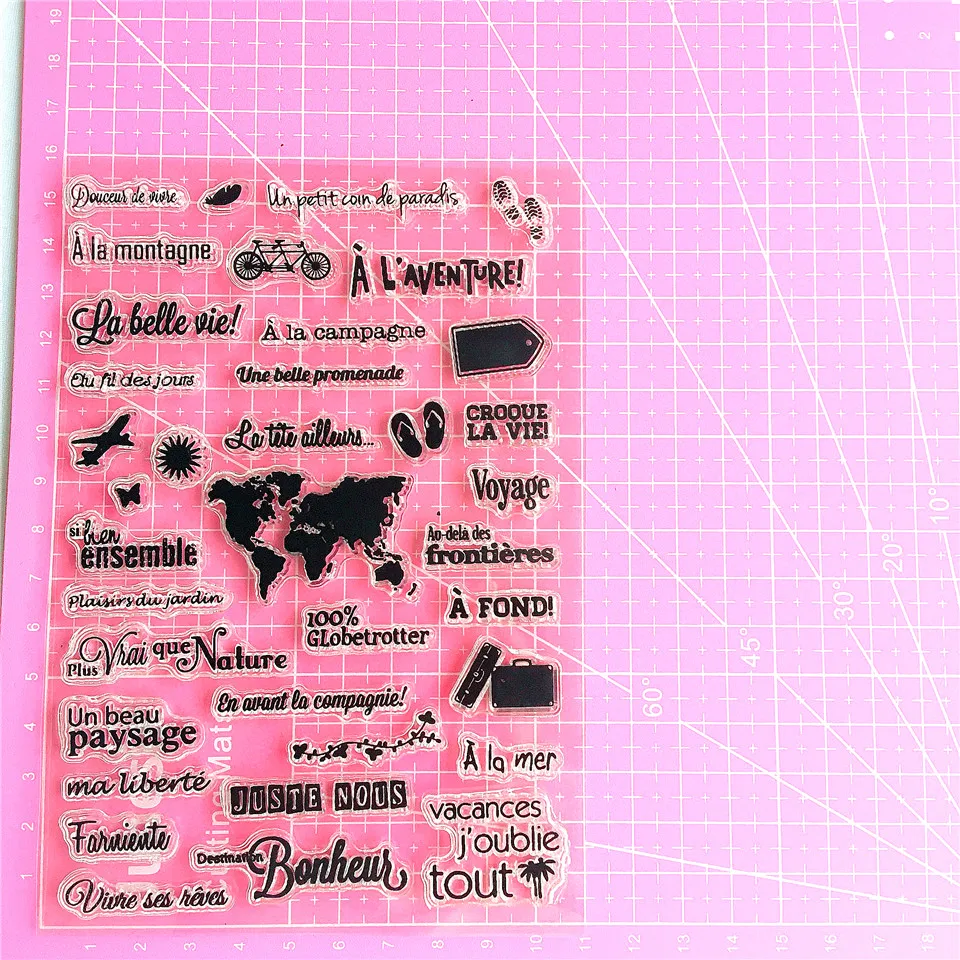 Douceur de vivre
Un petit coin de paradis
À la montagne
À L'AVENTURE!
La belle vie!
À la campagne
Au fil des jours
Une belle promenade
La tête ailleurs...
CROQUE
LA VIE!
Voyage
si bien
ensemble
Au-delà des
frontières
Plaisirs du jardin
100%
GLobetrotter
À FOND!
Plus Vrai que Nature
En avant la compagnie!
Un beau
paysage
À la mer
ma liberté
JUSTE NOUS
vacances
j'oublie
tout
Farniente
Destination
Bonheur
Vivre ses rêves
19
18
17
16
15
14
13
12
11
10
9
8
7
6
5
4
3
2
1
1 2 3 4 5 6 7 8 9 10 11 12 13 14 15 16 17 18
60°
45°
30°
20°
10°
2